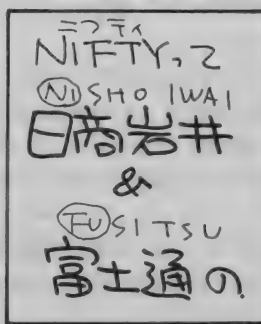 ニフティ
NIFTYって
NISHO IWAI
日商岩井
&
FUSITSU
富士通の